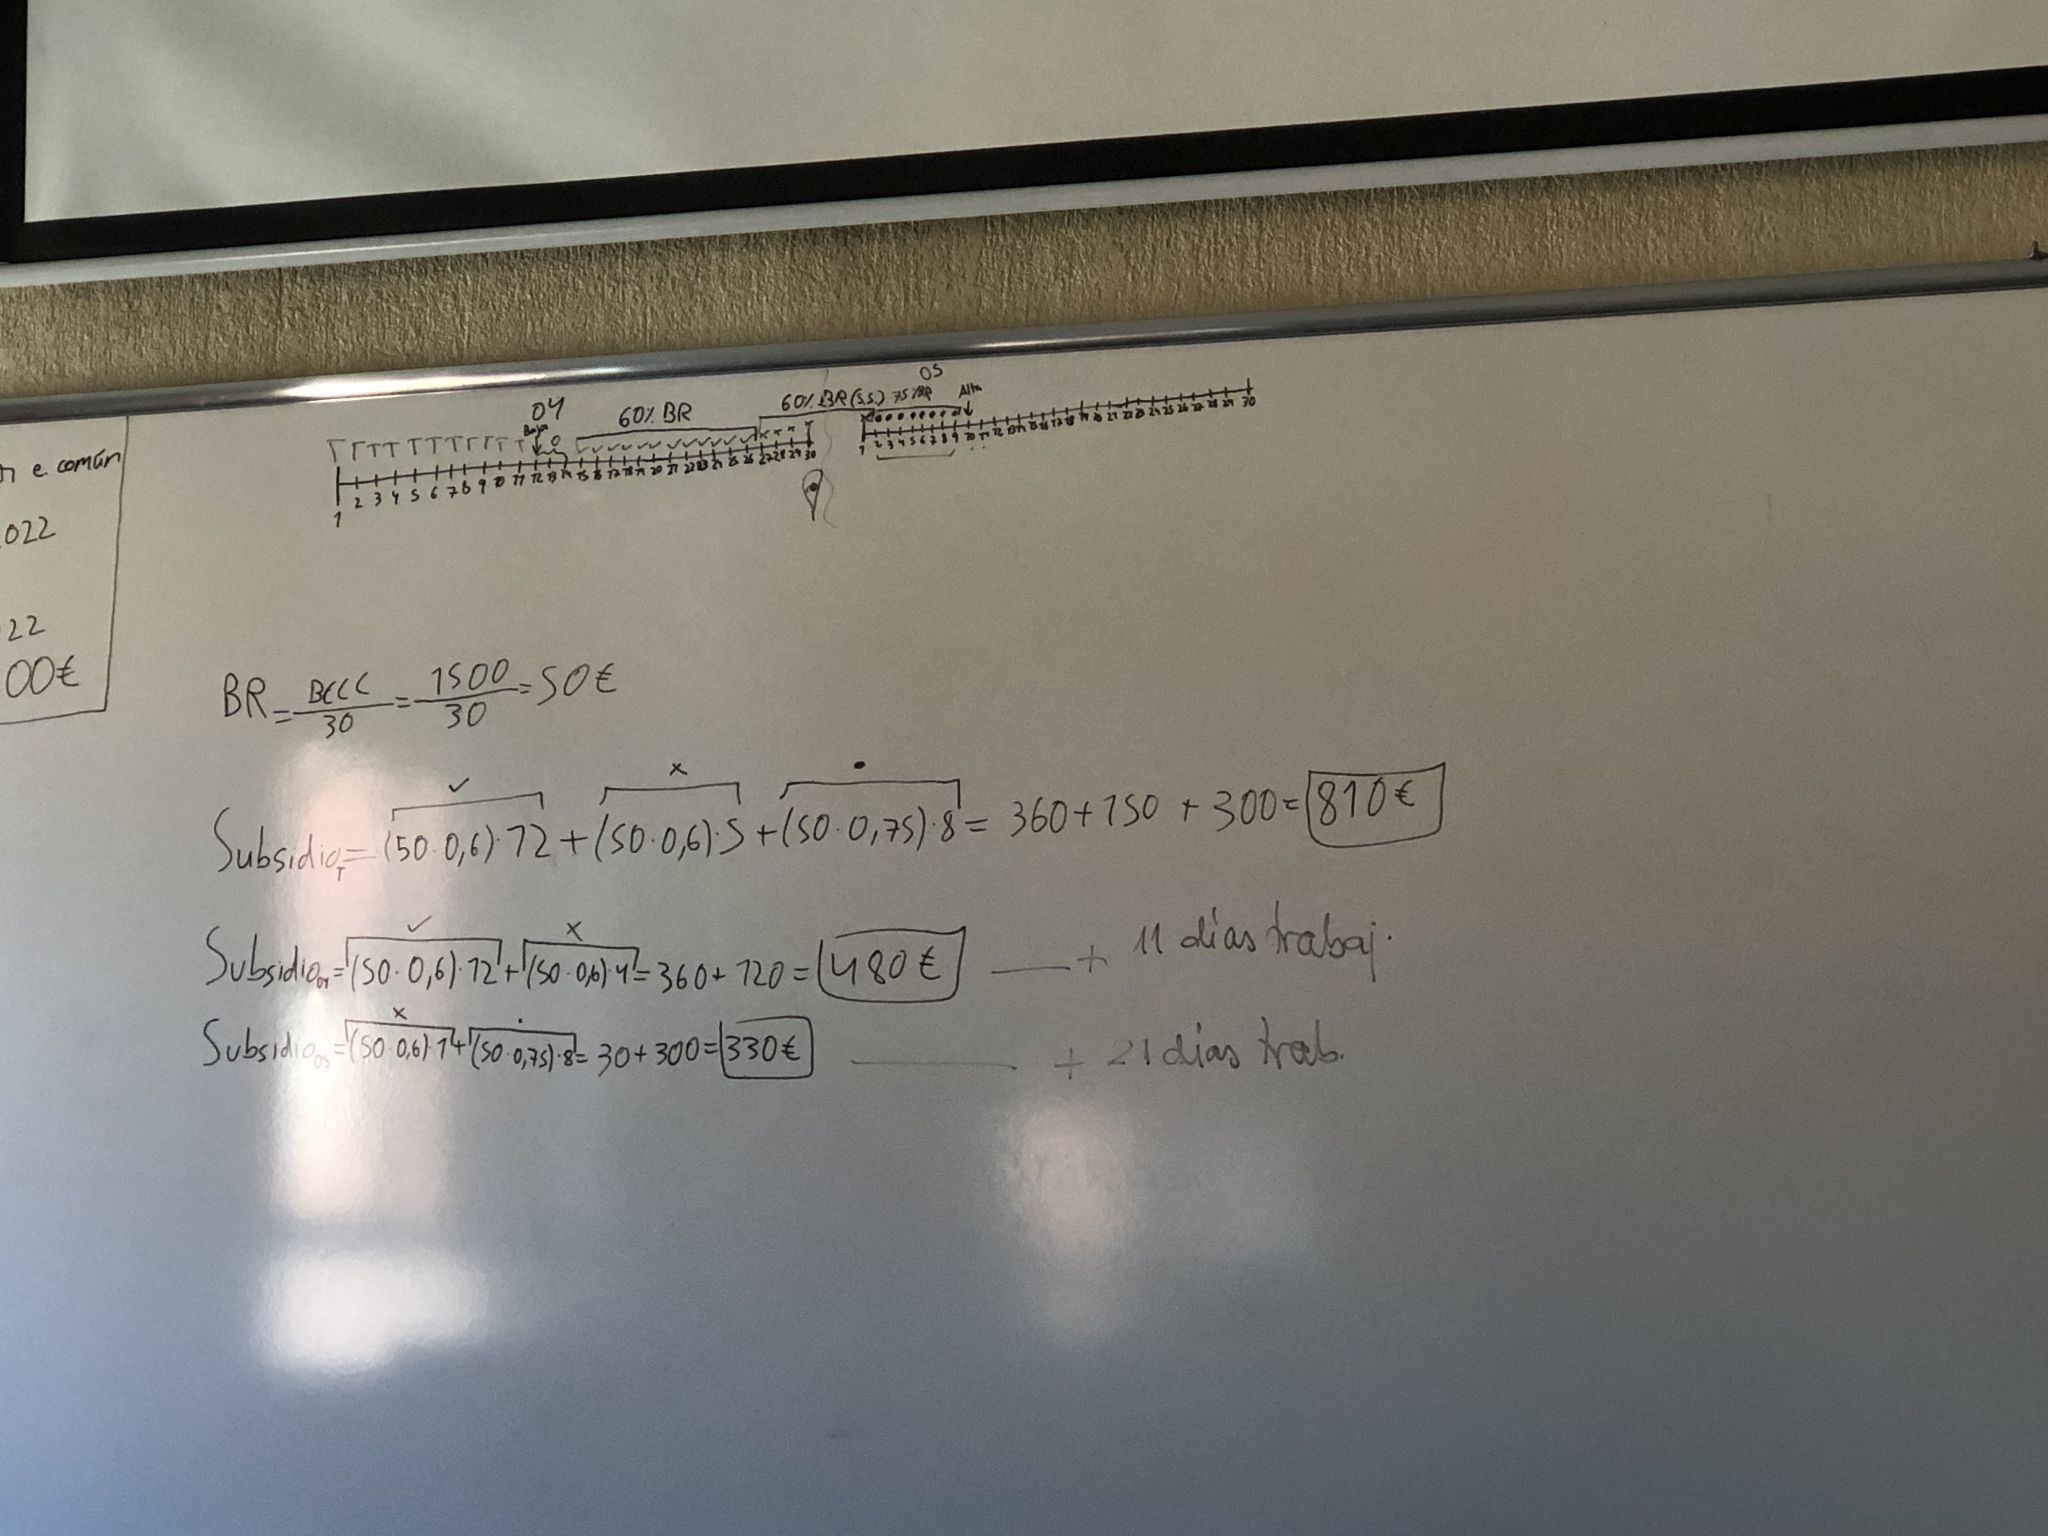 e común
022
22
00€
04 05
Baja 60% BR 60% BR (S.S.) 75% BR Alta
T T T T T T T T T T T
1 2 3 4 5 6 7 8 9 10 11 12 13 14 15 16 17 18 19 20 21 22 23 24 25 26 27 28 29 30
1 2 3 4 5 6 7 8 9 10 11 12 13 14 15 16 17 18 19 20 21 22 23 24 25 26 27 28 29 30
BR = BCCC/30 = 1500/30 = 50€
✓ x •
Subsidio_T = (50·0,6)·12 + (50·0,6)·5 + (50·0,75)·8 = 360 + 150 + 300 = 810€
✓ x
Subsidio_04 = (50·0,6)·12 + (50·0,6)·4 = 360 + 120 = 480€ + 11 días trabaj.
x •
Subsidio_05 = (50·0,6)·1 + (50·0,75)·8 = 30 + 300 = 330€ + 21 días trab.